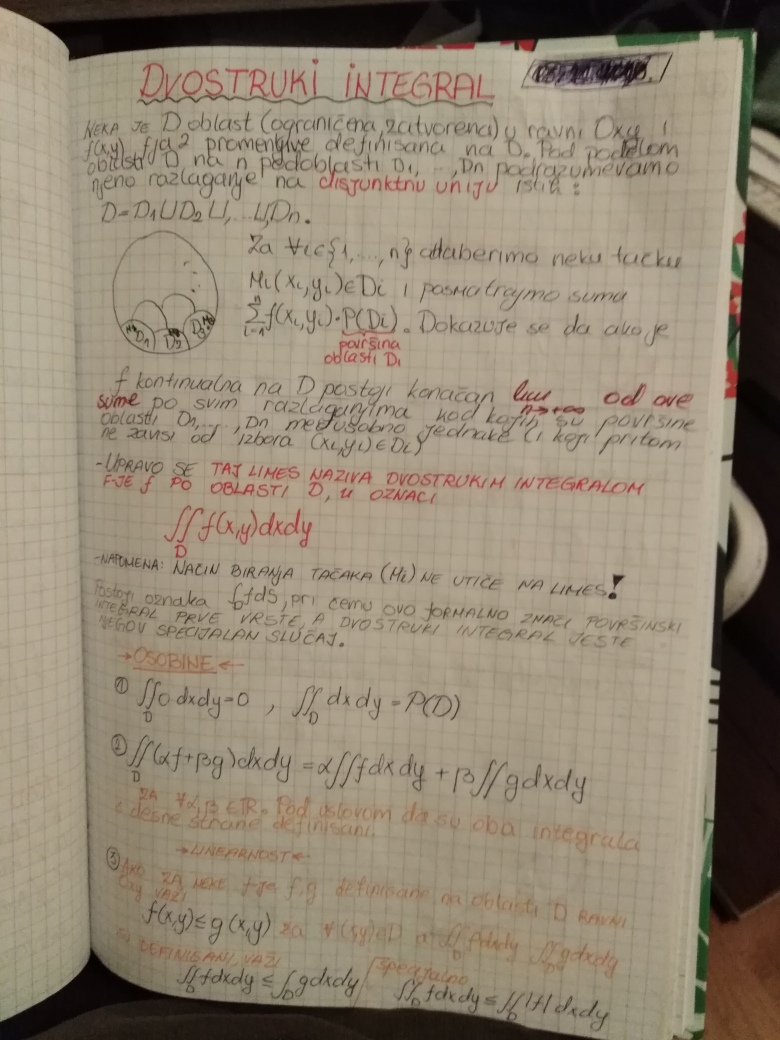 DVOSTRUKI INTEGRAL
NEKA JE D oblast (ograničena, zatvorena) u ravni Oxy i
f(x,y) f-ja 2 promenljive definisana na D. Pod podelom
oblasti D na n podoblasti D₁, ..., Dn podrazumevamo
njeno razlaganje na disjunktnu uniju istih:
D=D₁∪D₂∪,...∪Dn.
Za ∀i∈{1,...,n} odaberimo neku tačku
Mi(xi,yi)∈Di i posmatrajmo suma
∑ᵢ₌₁ⁿ f(xi,yi)·P(Di). Dokazuje se da ako je
površina
oblasti Di
D₁ D₂
f kontinualna na D postoji konačan lim n→+∞ od ove
sume po svim razlaganjima kod kojih su površine
oblasti D₁,...,Dn međusobno jednake (i koji pritom
ne zavisi od izbora (xi,yi)∈Di)
-UPRAVO SE TAJ LIMES NAZIVA DVOSTRUKIM INTEGRALOM
F-JE f PO OBLASTI D, U OZNACI
∬_D f(x,y)dxdy
-NAPOMENA: NAČIN BIRANJA TAČAKA (Mi) NE UTIČE NA LIMES!
Postoji oznaka ∫_D fdS, pri čemu ovo FORMALNO ZNAČI POVRŠINSKI
INTEGRAL PRVE VRSTE, A DVOSTRUKI INTEGRAL JESTE
NJEGOV SPECIJALAN SLUČAJ.
→OSOBINE←
① ∬_D 0 dxdy=0 , ∬_D dxdy=P(D)
② ∬_D (αf+βg)dxdy = α∬fdxdy + β∬gdxdy
ZA ∀α,β∈R. Pod uslovom da su oba integrala
s desne strane definisani.
→LINEARNOST←
③ AKO ZA NEKE f-je f,g definisane na oblasti D RAVNI
Oxy VAŽI
f(x,y)≤g(x,y) za ∀(x,y)∈D a ∬_D fdxdy ∬_D gdxdy
SU DEFINISANI, VAŽI
∬_D fdxdy ≤ ∫_D gdxdy / specijalno ∬_D fdxdy ≤ ∬_D |f| dxdy